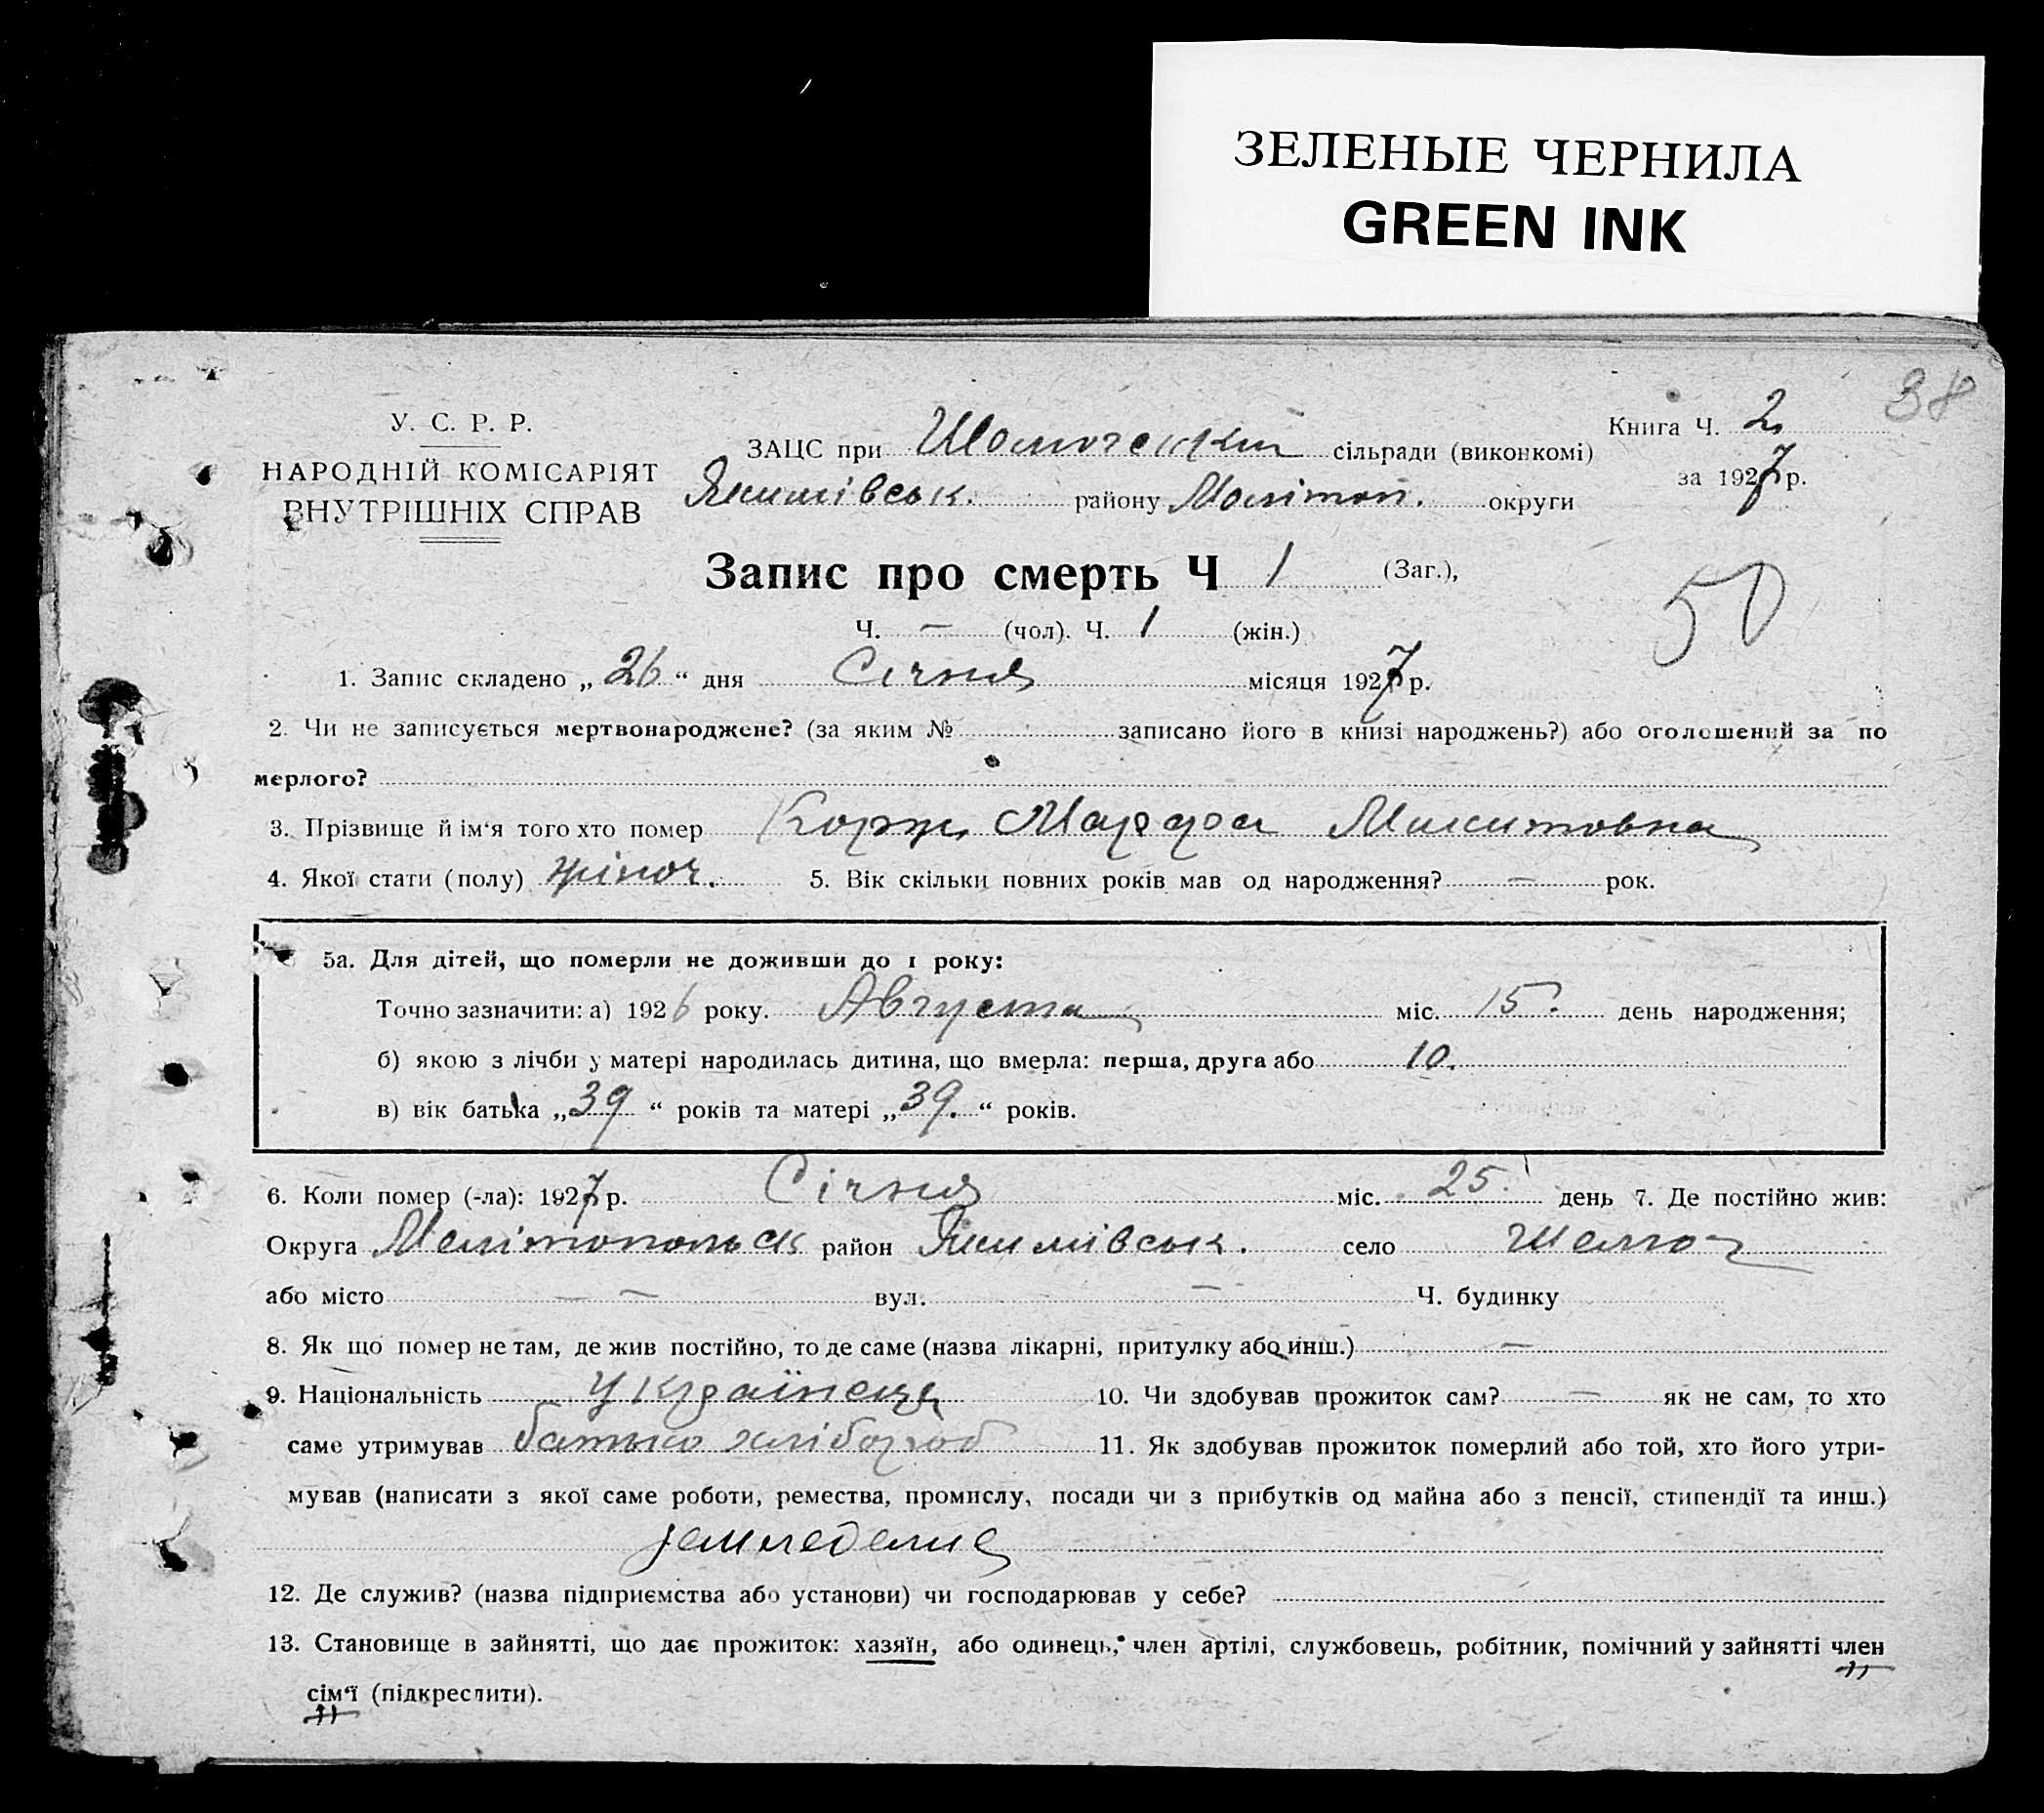 ЗЕЛЕНЫЕ ЧЕРНИЛА
GREEN INK
38
У. С. Р. Р.
НАРОДНІЙ КОМІСАРІЯТ
ВНУТРІШНІХ СПРАВ
ЗАЦС при сільради (виконкомі)
Якимівськ. району Мелітоп. округи
Книга Ч. 2
за 1927 р.
Запис про смерть Ч 1 (Заг.),
50
Ч. — (чол). Ч. 1 (жін.)
1. Запис складено „ 26 “ дня Січня місяця 1927 р.
2. Чи не записується мертвонароджене? (за яким № записано його в книзі народжень?) або оголошений за по
мерлого?
3. Прізвище й ім‘я того хто помер Корж Марфа Микитовна
4. Якої стати (полу) жіноч. 5. Вік скільки повних років мав од народження? — рок.
5а. Для дітей, що померли не доживши до 1 року:
Точно зазначити: а) 1926 року. Августа міс. 15. день народження;
б) якою з лічби у матері народилась дитина, що вмерла: перша, друга або 10.
в) вік батька „ 39 “ років та матері „ 39. “ років.
6. Коли помер (-ла): 1927 р. Січня міс. 25. день 7. Де постійно жив:
Округа Мелітопольск район Якимівськ. село
або місто — вул. — Ч. будинку
8. Як що помер не там, де жив постійно, то де саме (назва лікарні, притулку або инш.) —
9. Національність Українець 10. Чи здобував прожиток сам? — як не сам, то хто
саме утримував батько хлібороб 11. Як здобував прожиток померлий або той, хто його утри-
мував (написати з якої саме роботи, ремества, промислу, посади чи з прибутків од майна або з пенсії, стипендії та инш.)
земледелие
12. Де служив? (назва підприємства або установи) чи господарював у себе?
13. Становище в зайнятті, що дає прожиток: хазяїн, або одинець, член артілі, службовець, робітник, помічний у зайнятті член
сім‘ї (підкреслити).